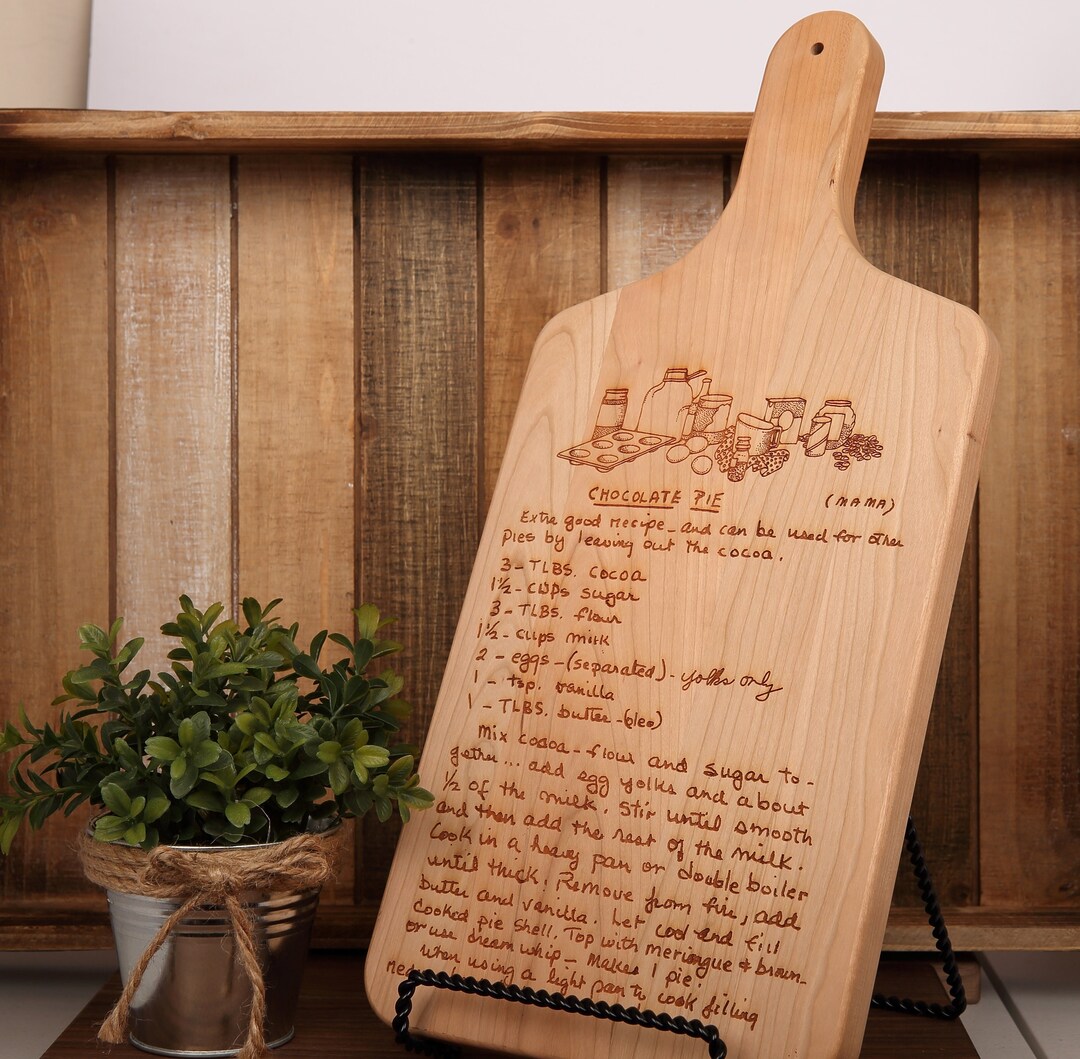 CHOCOLATE PIE (MAMA)
Extra good recipe - and can be used for other
pies by leaving out the cocoa.
3 - TLBS. cocoa
1½ - cups sugar
3 - TLBS. flour
1½ - cups milk
2 - eggs - (separated) - yolks only
1 - tsp. vanilla
1 - TLBS. butter - (oleo)
Mix cocoa - flour and sugar to -
gether ... add egg yolks and about
½ of the milk. Stir until smooth
and then add the rest of the milk.
Cook in a heavy pan or double boiler
until thick. Remove from fire, add
butter and vanilla. Let cool and fill
cooked pie shell. Top with meringue & brown -
or use dream whip - Makes 1 pie.
when using a light pan to cook filling